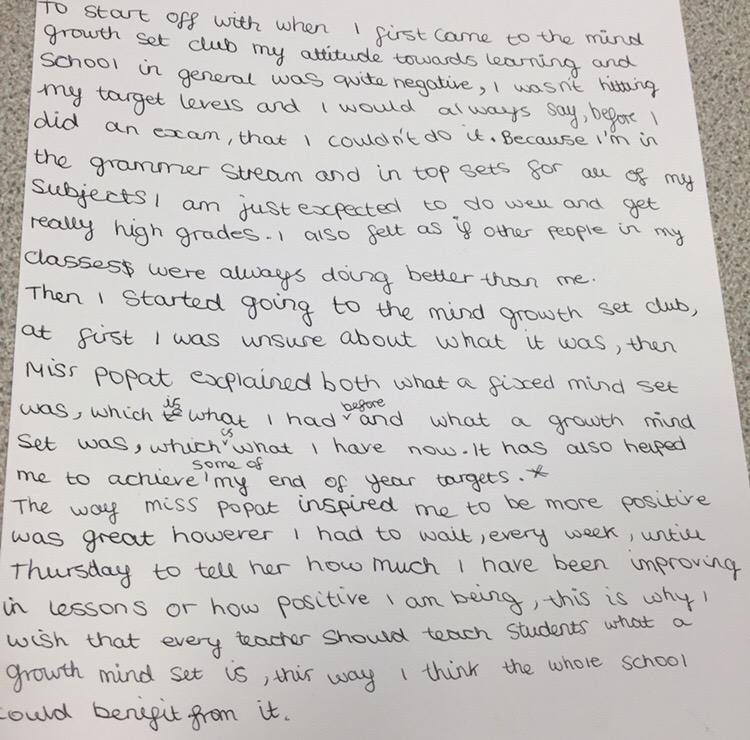 To start off with when I first came to the mind
growth set club my attitude towards learning and
school in general was quite negative, I wasn't hitting
my target levels and I would always say, before I
did an exam, that I couldn't do it. Because I'm in
the grammer stream and in top sets for all of my
subjects I am just expected to do well and get
really high grades. I also felt as if other people in my
classes were always doing better than me.
Then I started going to the mind growth set club,
at first I was unsure about what it was, then
Miss Popat explained both what a fixed mind set
was, which is what I had before and what a growth mind
set was, which is what I have now. It has also helped
me to achieve some of my end of year targets.*
The way miss popat inspired me to be more positive
was great however I had to wait, every week, untill
Thursday to tell her how much I have been improving
in lessons or how positive I am being, this is why I
wish that every teacher should teach students what a
growth mind set is, this way I think the whole school
could benifit from it.